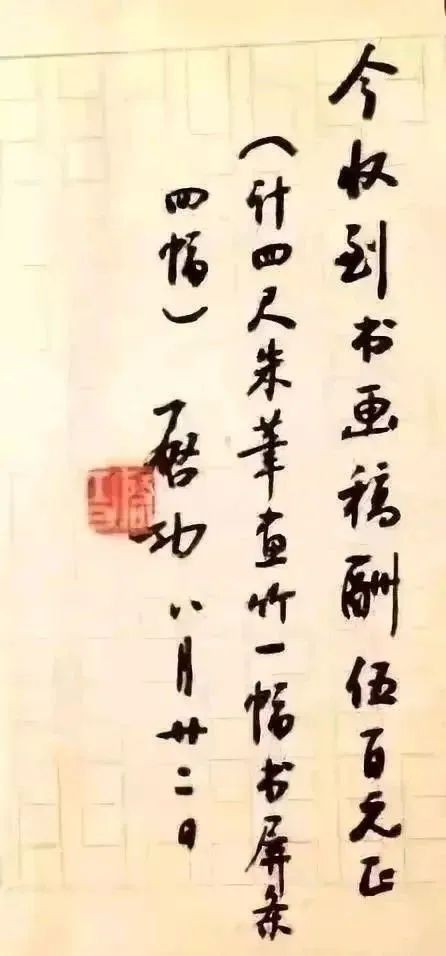 今收到书画稿酬伍百元正
（计四尺朱笔画竹一幅书屏条
四幅） 启功 八月廿二日
启功